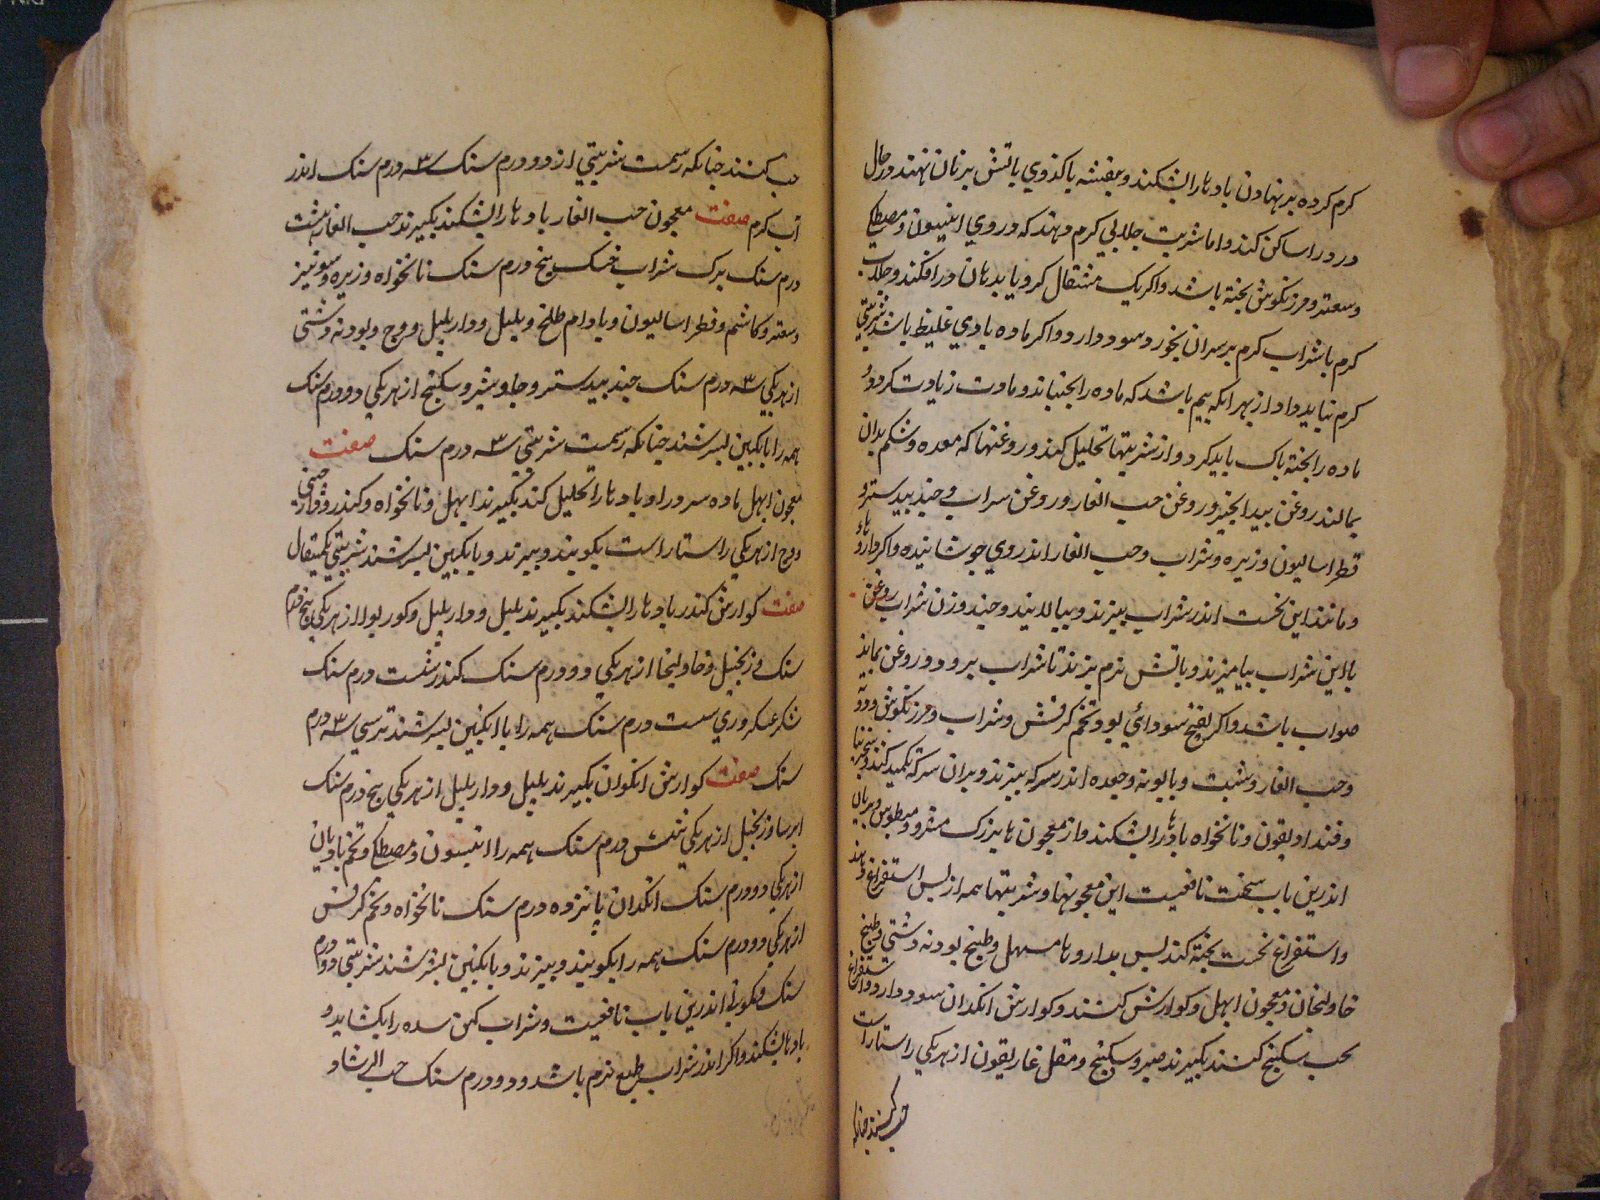 کرم کرده برنهادن بادها را بشکند و بنفشه با کدوی باتش بریان نهند در حال
درد را ساکن کند و اما شربت جلابی کرم دهند که در وی انیسون و مصطکی
و سعتر و مرزنکوش پخته باشد و اکر یک مثقال کرویا بدهان در افکند و جلاب
کرم یا شراب کرم بر سر آن بخورد سود دارد و اکر ماده بادی غلیظ باشد شربتی
کرم نباید داد از بهر آنکه بیم باشد که ماده را بجنباند و مادت زیادت کردد
ماده را پخته پاک باید کرد و از شربتها تحلیل کند و روغنها که معده و شکم بدان
بمالند روغن بیدانجیر و روغن حب الغار و روغن سداب و جند بیدستر و
قطراسالیون و زیره و شراب و حب الغار اندر وی جوشانیده و اکر داروها
و مانند این نخست اندر شراب بپزند و بپالایند و چند وزن شراب روغن
با این شراب بیامیزند و باتش نرم بپزند تا شراب برود و روغن بماند
صواب باشد و اکر نفخ سودائی بود تخم کرفس و شراب و مرزنکوش و
و حب الغار و شبت و بابونه و جعده اندر سرکه بپزند و بدان سرکه تکمید کنند و
و قنداویقون و نانخواه بادها را بشکند و از معجون ها بزرک مثرودیطوس و
اندرین باب سخت نافعست این معجونها و شربتها همه از پس استفراغ دهند
و استفراغ نخست پخته کند پس بدارو نا مسهل و طبیخ پودنه دشتی و طبیخ
خاولنجان و معجون ابهل و کوارش کندر و کوارش انکدان سود دارد و استفراغ
بحب سکبینج کنند بکیرند صبر و سکبینج و مقل غاریقون از هریکی راستاراست
حب کنند چنانکه
حب کنند چنانکه رسمست شربتی از دو درم سنک تا ۳ درم سنک اندر
آب کرم صفت معجون حب الغار بادها را بشکند بکیرند حب الغار هشت
درم سنک برک سداب خشک پنج درم سنک نانخواه و زیره و شونیز
و سعتر و کاشم و قطراسالیون و بادام طلخ و پلپل و دارپلپل و وج و پودنه دشتی
از هریکی ۳ درم سنک جند بیدستر و جاوشیر و سکبینج از هریکی دو درم سنک
همه را بانکبین بسرشند چنانکه رسمست شربتی ۳ درم سنک صفت
معجون ابهل ماده سرد را و بادها را تحلیل کند بکیرند ابهل و نانخواه و کندر و دارچینی
و وج از هریکی راستاراست بکوبند و ببیزند و بانکبین بسرشند شربتی یکمثقال
صفت کوارش کندر بادها را بشکند بکیرند پلپل و دارپلپل و کوزبوا از هریکی پنج درم
سنک و زنجبیل و خاولنجان از هریکی دو درم سنک کندر شست درم سنک
شکر عسکری بیست درم سنک همه را با انکبین بسرشند شربتی ۳ درم
سنک صفت کوارش انکدان بکیرند پلپل و دارپلپل از هریکی پنج درم سنک
ایرسا و زنجبیل از هریکی شش درم سنک همه را انیسون و مصطکی و تخم بادیان
از هریکی دو درم سنک انکدان پانزده درم سنک نانخواه و تخم کرفس
از هریکی دو درم سنک همه را بکوبند و ببیزند و بانکبین بسرشند شربتی دو درم
سنک و کمونی اندرین باب نافعست و شراب کهن سده را بکشاید و
بادها بشکند و اکر اندر شراب طبع نرم باشد دو درم سنک حب الرشاد